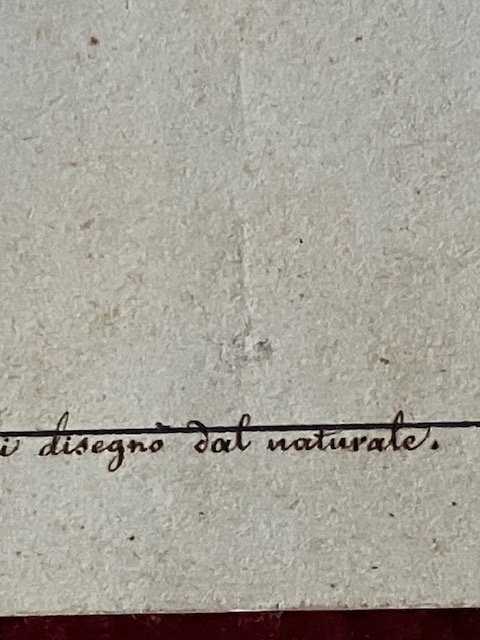 i disegnò dal naturale.